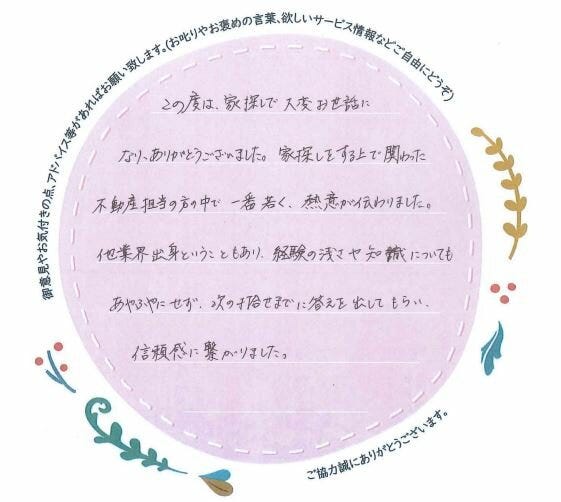 御意見やお気付きの点、アドバイス等があればお願い致します。(お叱りやお褒めの言葉、欲しいサービス情報などご自由にどうぞ)
この度は、家探しで大変お世話に
なり、ありがとうございました。家探しをする上で関わった
不動産担当の方の中で一番若く、熱意が伝わりました。
他業界出身ということもあり、経験の浅さや知識についても
あやふやにせず、次の打合せまでに答えを出してもらい、
信頼感に繋がりました。
ご協力誠にありがとうございます。